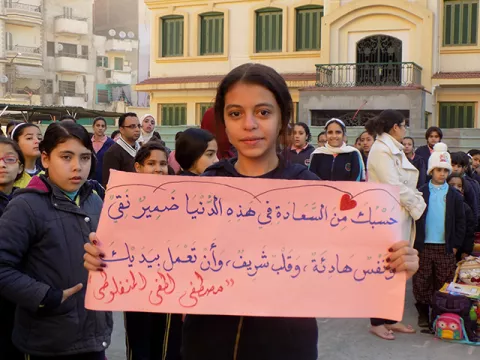 حَسْبُكَ مِنَ السَّعَادَةِ فِي هَذِهِ الدُّنْيَا ضَمِيرٌ نَقِيٌّ
وَنَفْسٌ هَادِئَةٌ، وَقَلْبٌ شَرِيفٌ، وَأَنْ تَعْمَلَ بِيَدَيْكَ
"مصطفى لطفى المنفلوطى"